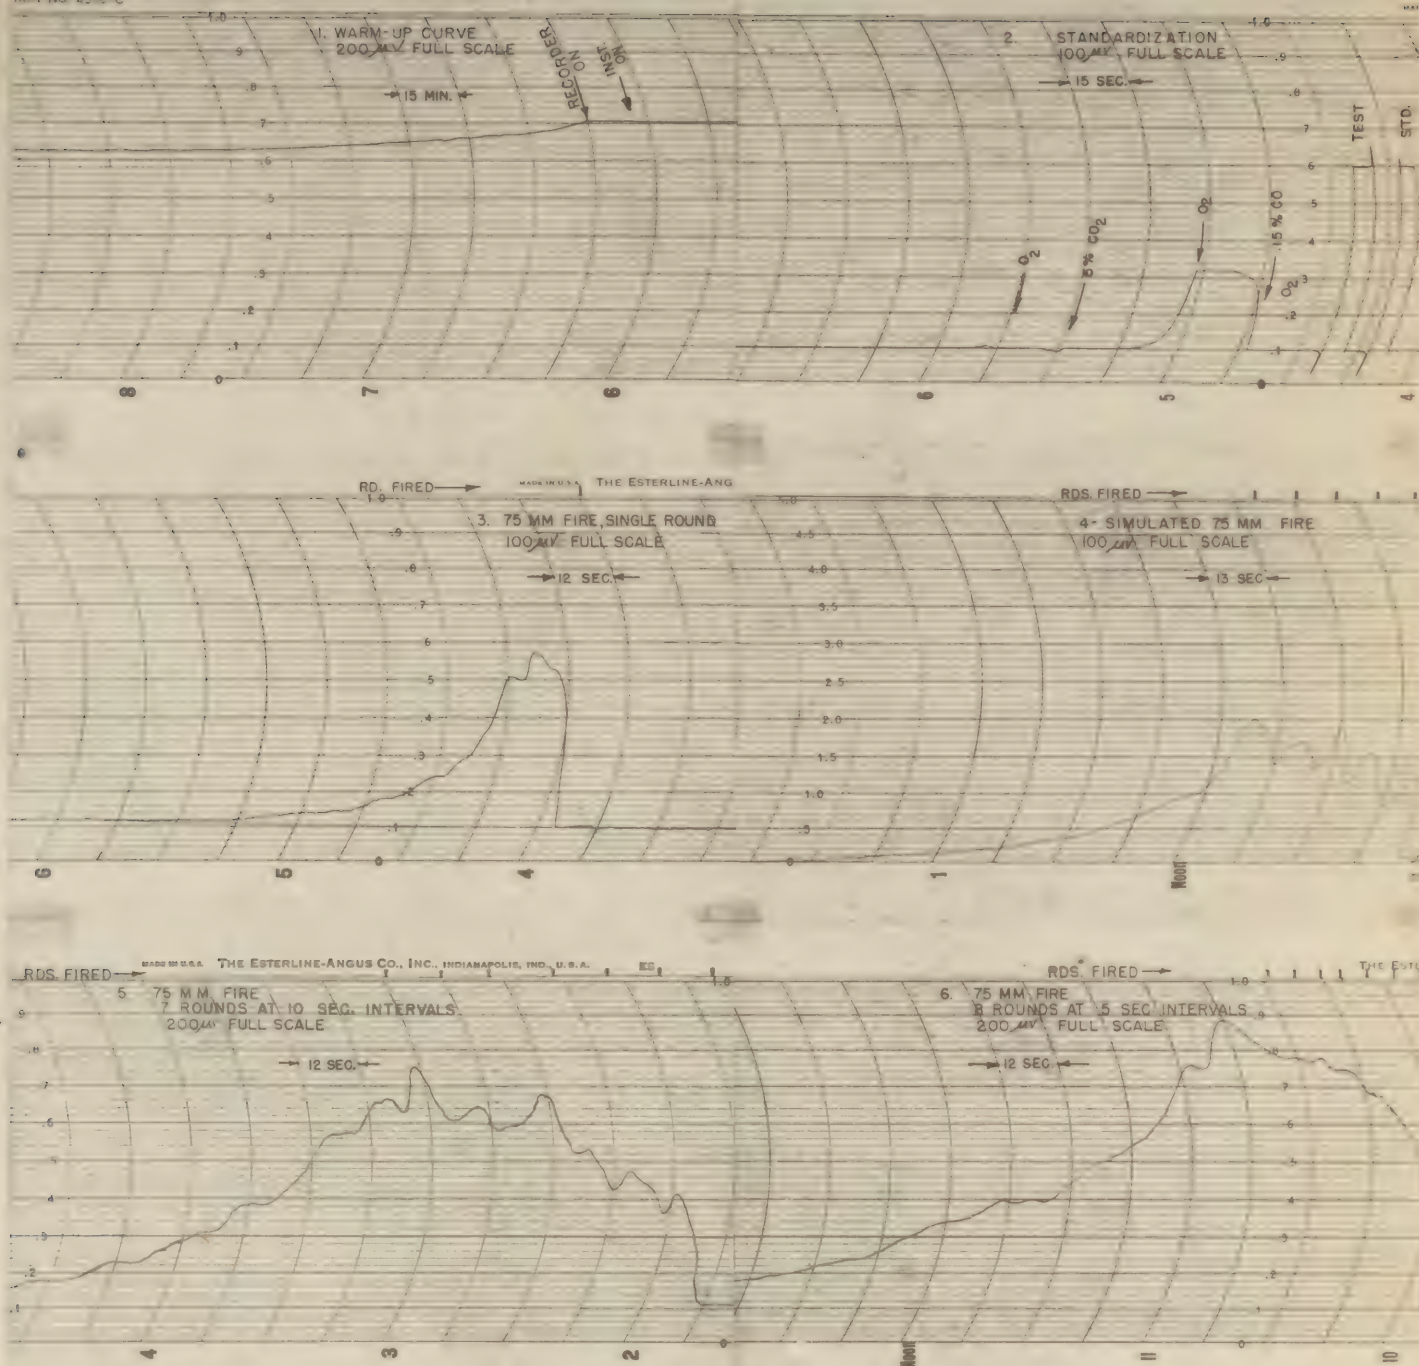 1. WARM-UP CURVE
200 μV FULL SCALE
15 MIN.
RECORDER ON
INST. ON
1.0
.9
.8
.7
.6
.5
.4
.3
.2
.1
0
8
7
6
2. STANDARDIZATION
100 μV FULL SCALE
15 SEC.
TEST
STD.
O2
5% CO2
O2
.15% CO
O2
1.0
.9
.8
.7
.6
.5
.4
.3
.2
.1
0
6
5
4
RD. FIRED
MADE IN U.S.A. THE ESTERLINE-ANG
3. 75 MM FIRE, SINGLE ROUND
100 μV FULL SCALE
12 SEC.
1.0
.9
.8
.7
.6
.5
.4
.3
.2
.1
0
6
5
4
RDS. FIRED
4- SIMULATED 75 MM FIRE
100 μV FULL SCALE
13 SEC
5.0
4.5
4.0
3.5
3.0
2.5
2.0
1.5
1.0
.5
0
1
Noon
RDS. FIRED
MADE IN U.S.A. THE ESTERLINE-ANGUS CO., INC., INDIANAPOLIS, IND., U.S.A.
ES
5. 75 MM FIRE
7 ROUNDS AT 10 SEC. INTERVALS
200 μV FULL SCALE
12 SEC.
1.0
.9
.8
.7
.6
.5
.4
.3
.2
.1
0
4
3
2
RDS. FIRED
THE ESTE
6. 75 MM FIRE
8 ROUNDS AT 5 SEC INTERVALS
200 μV FULL SCALE
12 SEC.
1.0
.9
.8
.7
.6
.5
.4
.3
.2
.1
0
Noon
11
10